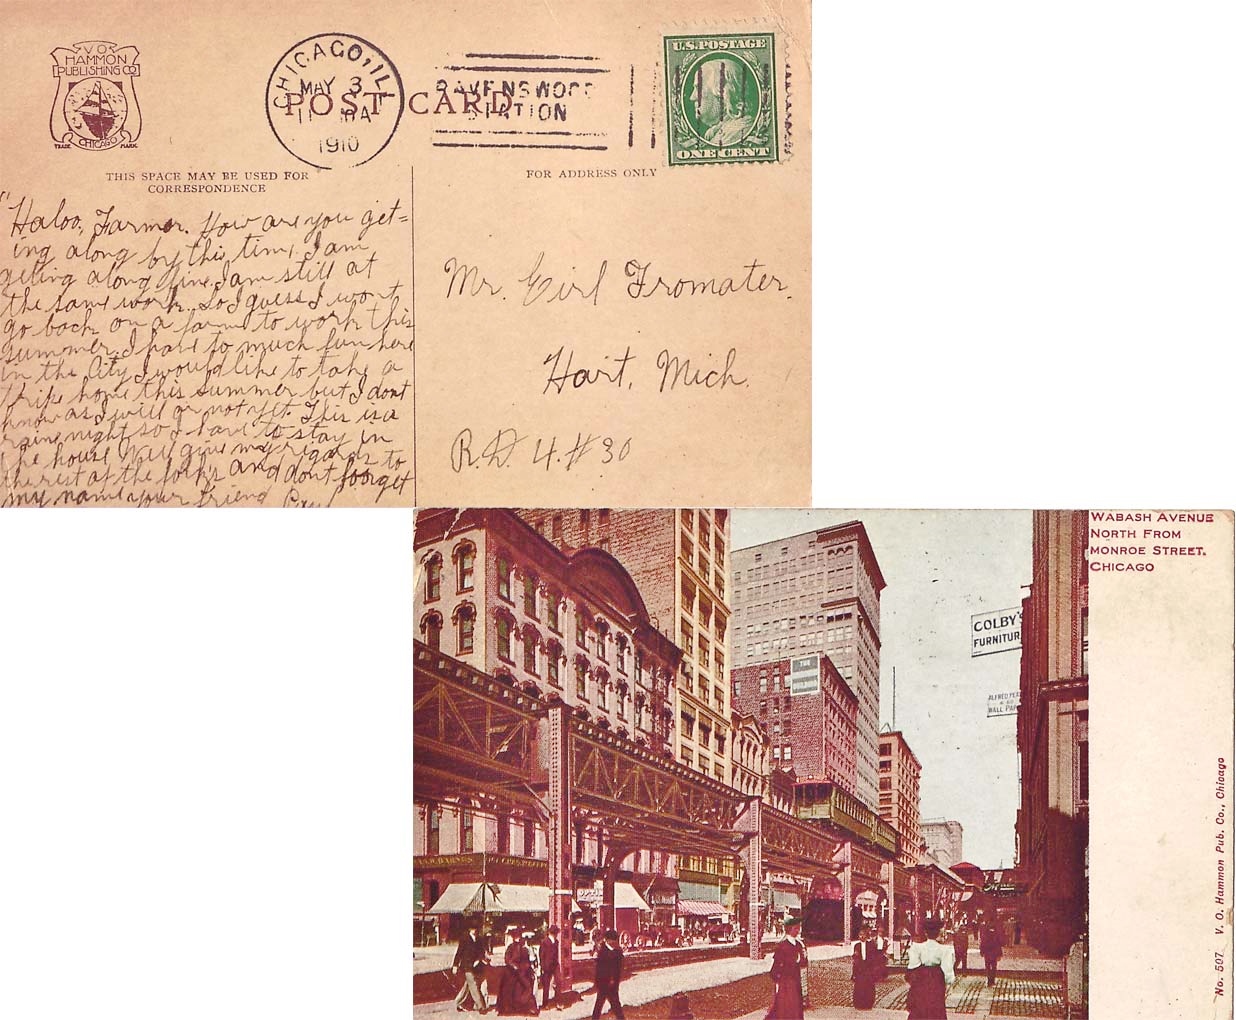 V.O.
HAMMON
PUBLISHING CO
CHICAGO
TRADE MARK
CHICAGO, ILL
MAY 3
11
1910
POST CARD
RAVENSWOOD
STATION
U.S. POSTAGE
ONE CENT
THIS SPACE MAY BE USED FOR
CORRESPONDENCE
FOR ADDRESS ONLY
"Haloo, Farmer. How are you get=
ing along by this tim, I am
geting along fine. I am still at
the same work. So I guess I wont
go back on a farm to work this
summer, I have to much fun here
in the City I would like to take a
tripe home this summer but I dont
know as I will or not yet. This is a
raine night so I have to stay in
the house Well give my regards to
the rest of the folks and dont foorget
my name your friend
Mr. Eirl Fromater.
Hart, Mich.
R.D. 4. # 30
WABASH AVENUE
NORTH FROM
MONROE STREET.
CHICAGO
COLBY'S
FURNITUR
THE
ALFRED PEA
WALL PAP
No. 507 V. O. Hammon Pub. Co., Chicago